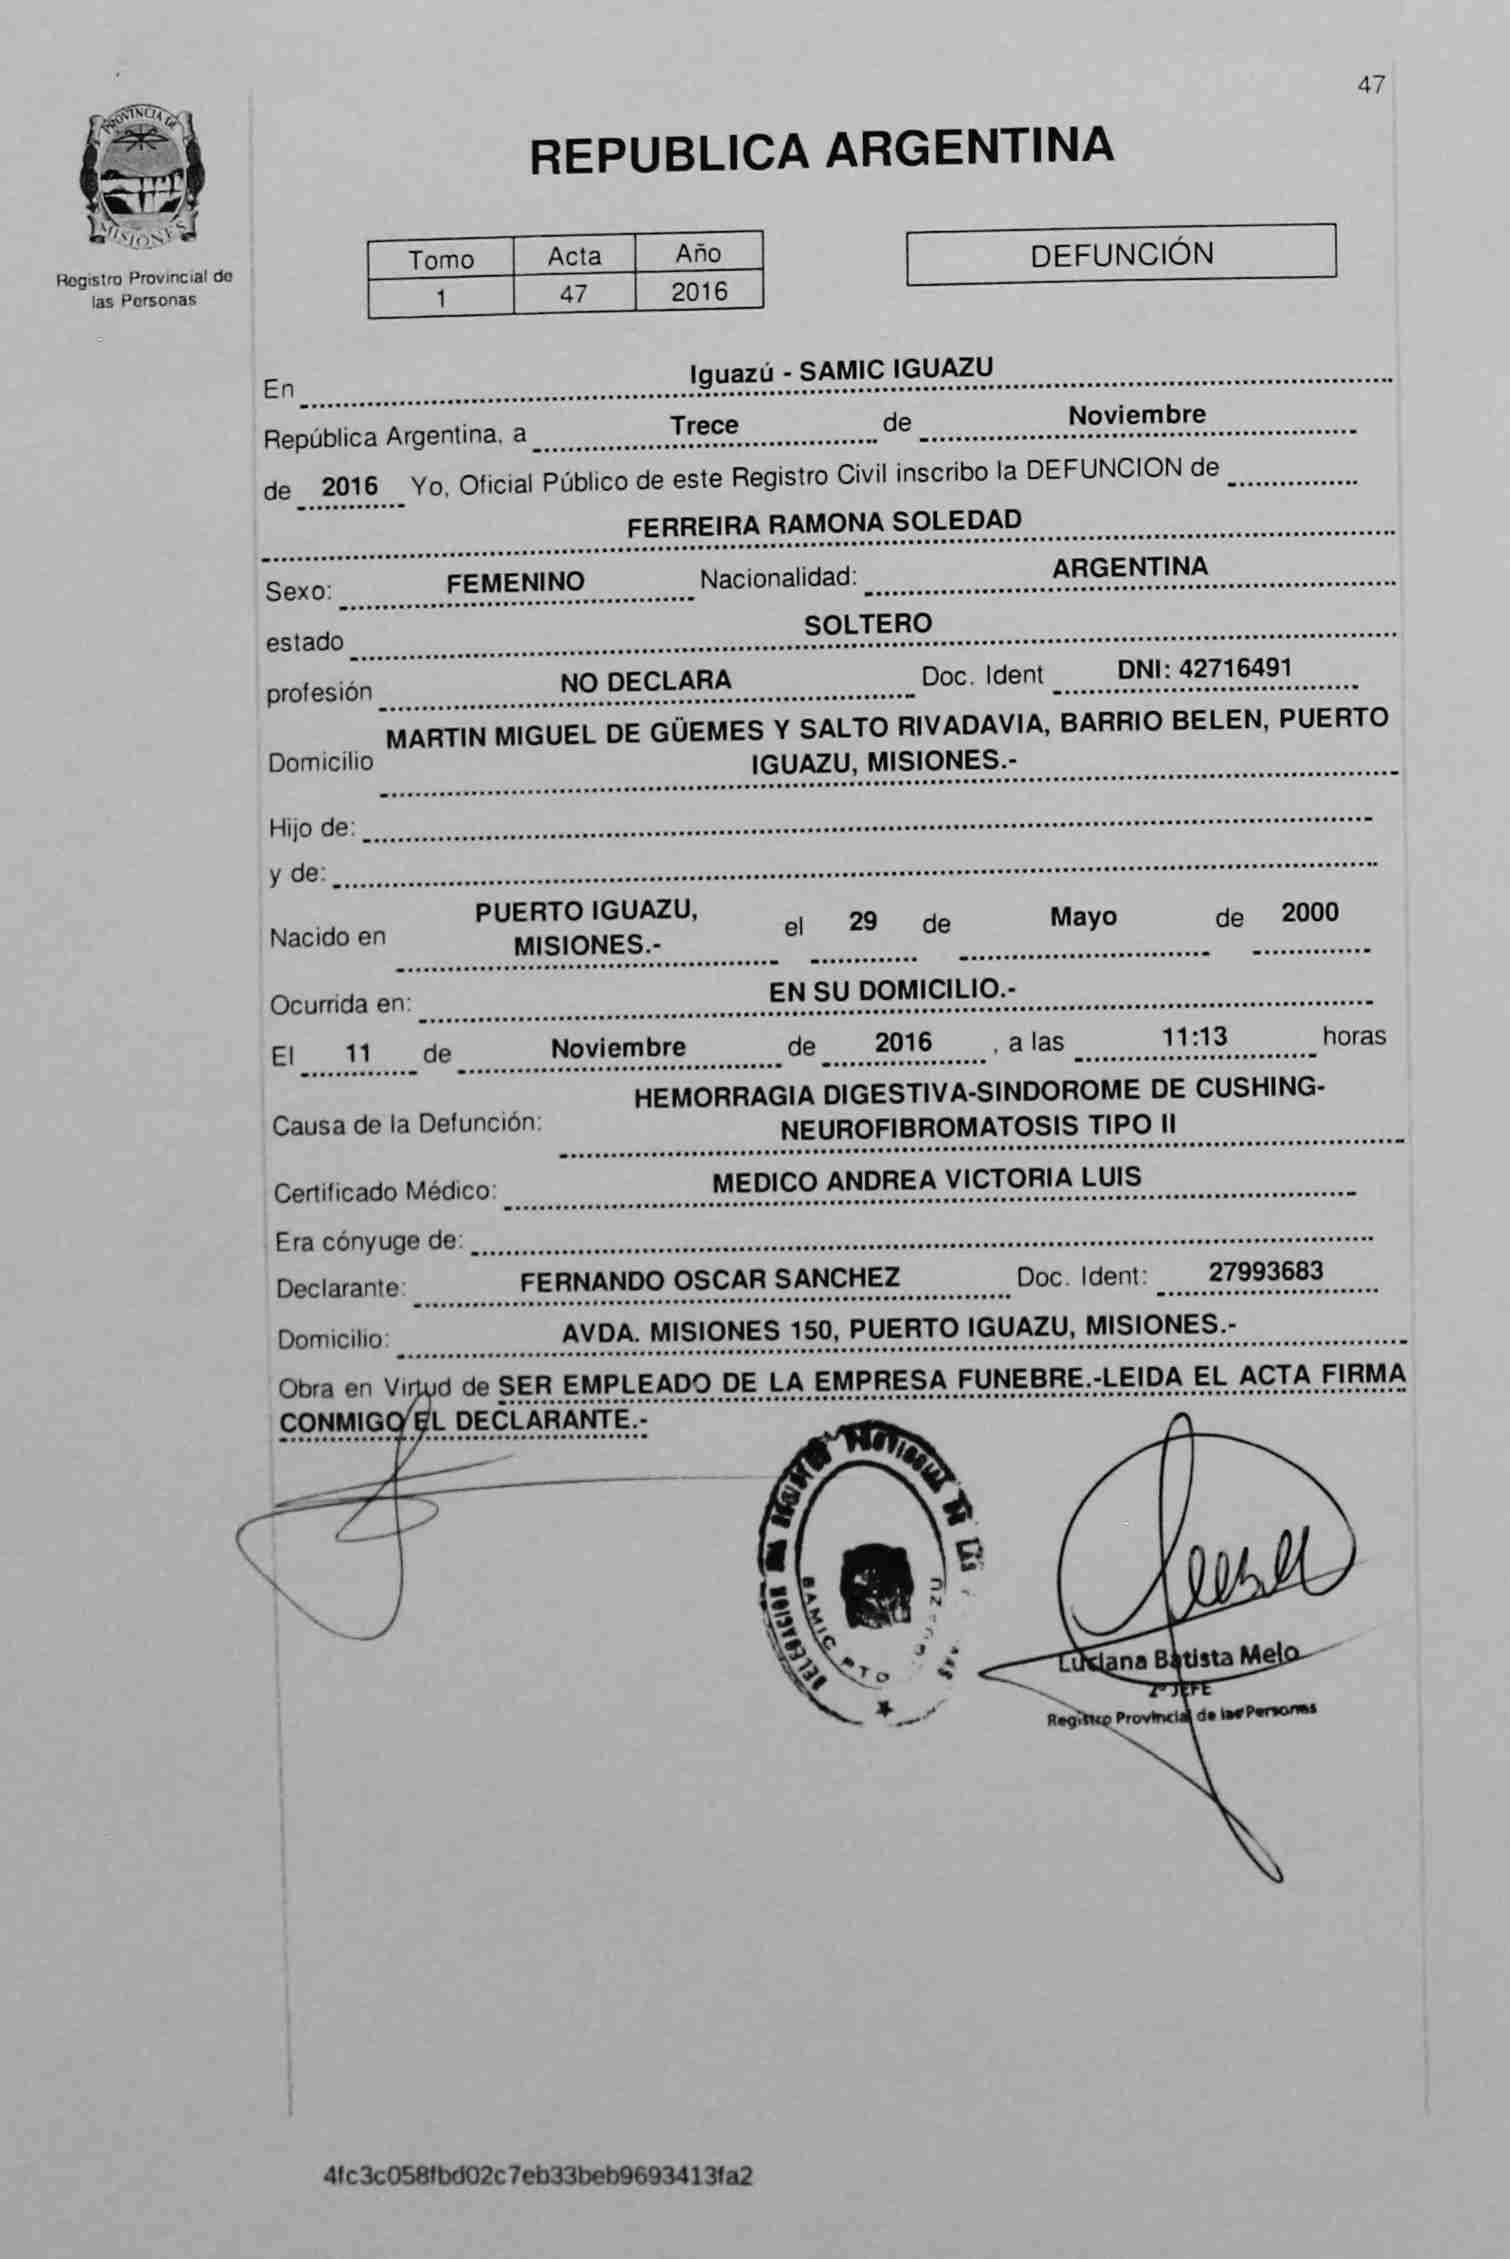 47
PROVINCIA DE
MISIONES
Registro Provincial de
las Personas
REPUBLICA ARGENTINA
Tomo Acta Año
1 47 2016
DEFUNCIÓN
En Iguazú - SAMIC IGUAZU
República Argentina, a Trece de Noviembre
de 2016 Yo, Oficial Público de este Registro Civil inscribo la DEFUNCION de
FERREIRA RAMONA SOLEDAD
Sexo: FEMENINO Nacionalidad: ARGENTINA
estado SOLTERO
profesión NO DECLARA Doc. Ident DNI: 42716491
Domicilio MARTIN MIGUEL DE GÜEMES Y SALTO RIVADAVIA, BARRIO BELEN, PUERTO
IGUAZU, MISIONES.-
Hijo de:
y de:
Nacido en PUERTO IGUAZU,
MISIONES.- el 29 de Mayo de 2000
Ocurrida en: EN SU DOMICILIO.-
El 11 de Noviembre de 2016 , a las 11:13 horas
Causa de la Defunción: HEMORRAGIA DIGESTIVA-SINDOROME DE CUSHING-
NEUROFIBROMATOSIS TIPO II
Certificado Médico: MEDICO ANDREA VICTORIA LUIS
Era cónyuge de:
Declarante: FERNANDO OSCAR SANCHEZ Doc. Ident: 27993683
Domicilio: AVDA. MISIONES 150, PUERTO IGUAZU, MISIONES.-
Obra en Virtud de SER EMPLEADO DE LA EMPRESA FUNEBRE.-LEIDA EL ACTA FIRMA
CONMIGO EL DECLARANTE.-
DELEGACION
PROVINCIAL DE LAS
SAMIC PTO
Luciana Batista Melo
2º JEFE
Registro Provincial de las Personas
4fc3c058fbd02c7eb33beb9693413fa2